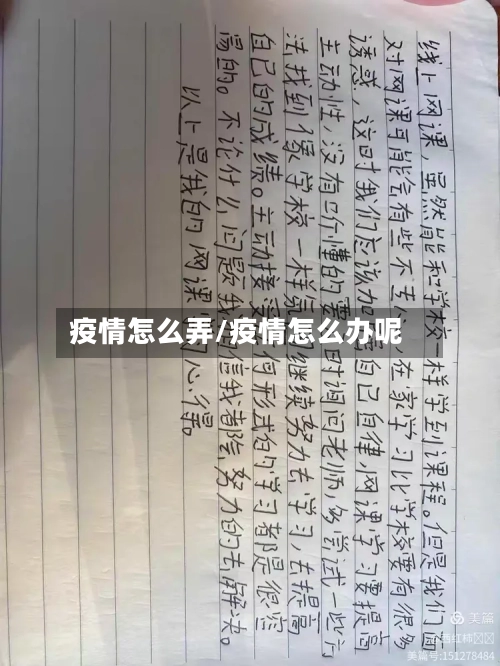 线上网课,虽然能和学校一样学到课程。但是我们面
对网课可能会有些不专心,在家学习比学校要有很多
诱惑,这时我们应该加 自己自律,网课学习要提高
主动性,没有听懂的要 时询问老师,多尝试一些方
法找到像学校一样氛 继续努力去学习,去提高
自己的成绩。主动接 何形式的学习都是很容
易的。不论什么问题我 信我都能努力的去解决。
以上是我的网课 心得。
疫情怎么弄/疫情怎么办呢
美篇
美篇号:151278484